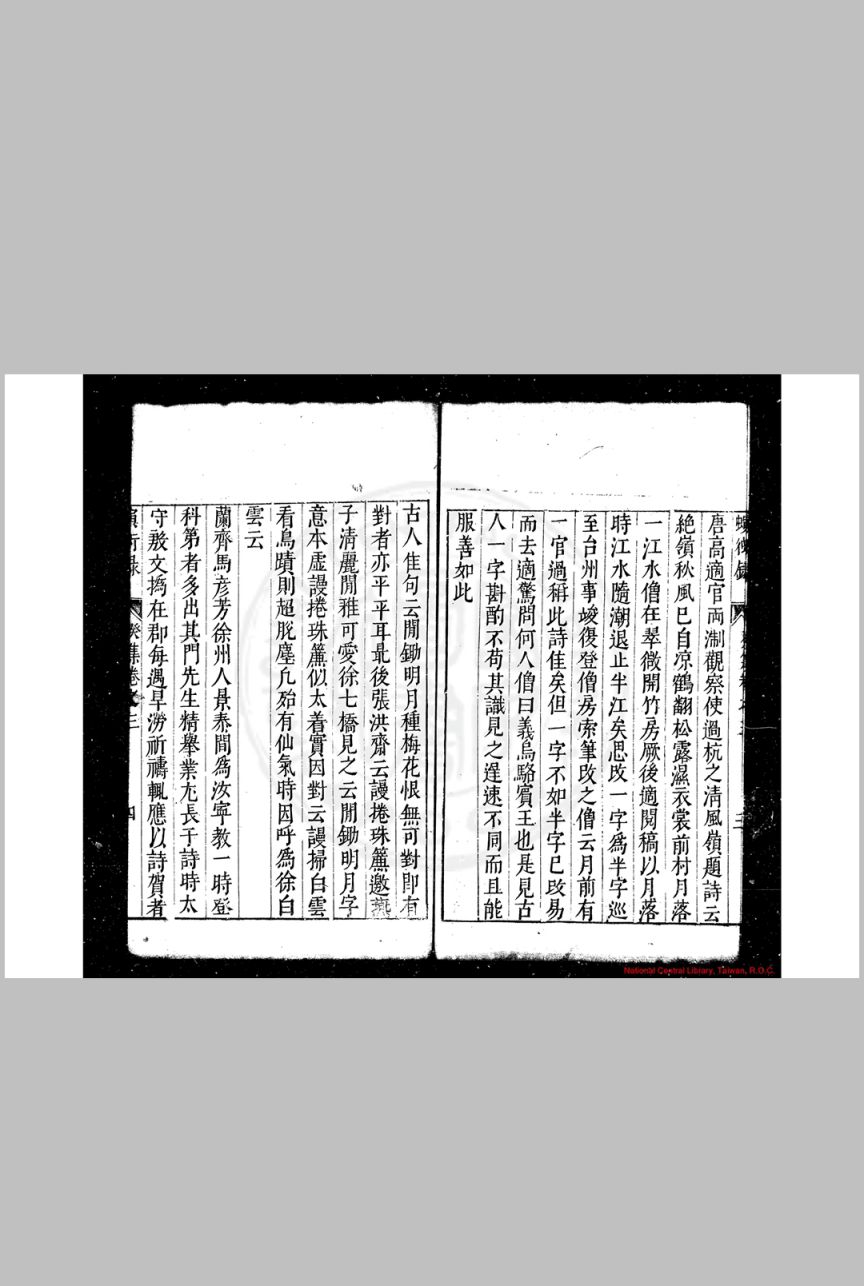 唐高適官兩淛觀察使過杭之清風嶺題詩云
絶嶺秋風巳自凉鶴翻松露濕衣裳前村月落
一江水僧在翠微開竹房厥後適閱稿以月落
時江水隨潮退止半江矣思改一字爲半字巡
至台州事竣復登僧房索筆改之僧云月前有
一官過稱此詩佳矣但一字不如半字巳改易
而去適驚問何人僧曰義烏駱賓王也是見古
人一字斟酌不苟其識見之遲速不同而且能
服善如此
古人佳句云閒鋤明月種梅花恨無可對即有
對者亦平平耳最後張洪齋云謾捲珠簾邀燕
子清麗閒雅可愛徐七橋見之云閒鋤明月字
意本虛謾捲珠簾似太着實因對云謾掃白雲
看鳥蹟則超脫塵凡殆有仙氣時因呼爲徐白
雲云
蘭齊馬彦芳徐州人景泰間爲汝寧教一時登
科第者多出其門先生精舉業尤長于詩時太
守敖文撝在郡每遇旱澇祈禱輒應以詩賀者
癸集卷之三
四
National Central Library, Taiwan, R.O.C.